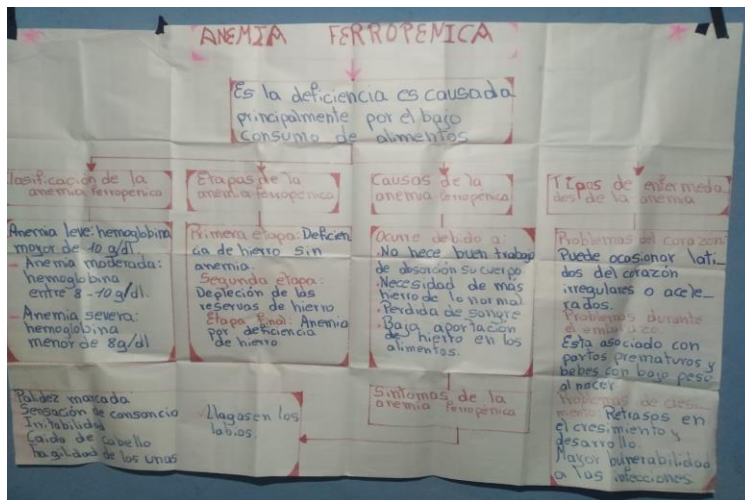 ANEMIA FERROPENICA
Es la deficiencia es causada
principalmente por el bajo
consumo de alimentos
Clasificación de la
anemia ferropenica
Anemia leve: hemoglobina
mayor de 10 g/dl.
- Anemia moderada:
hemoglobina
entre 8-10g/dl.
- Anemia severa:
hemoglobina
menor de 8g/dl
Etapas de la
anemia ferropenica
Primera etapa: Deficien
cia de hierro sin
anemia.
Segunda etapa:
Depleción de las
reservas de hierro
Etapa final: Anemia
por deficiencia
de hierro
Causas de la
anemia ferropenica
Ocurre debido a:
.No hece buen trabajo
de absorción su cuerpo
.Necesidad de más
hierro de lo normal
.Perdida de sangre
.Baja aportación
de hierro en los
alimentos.
Tipos de enfermeda
des de la anemia
Problemas del corazón
Puede ocasionar lati-
dos del corazón
irregulares o acele-
rados.
Problemas durante
el embarazo.
Esta asociado con
partos prematuros y
bebes con bajo peso
al nacer
Problemas de creci-
miento: Retrasos en
el cresimiento y
desarrollo.
Mayor bulnerabilidad
a las infecciones
Sintomas de la
anemia ferropenica
Llagas en los
labios.
Palidez marcada
Sensación de cansancio
Irritabilidad
Caida de cabello
fragilidad de las unas